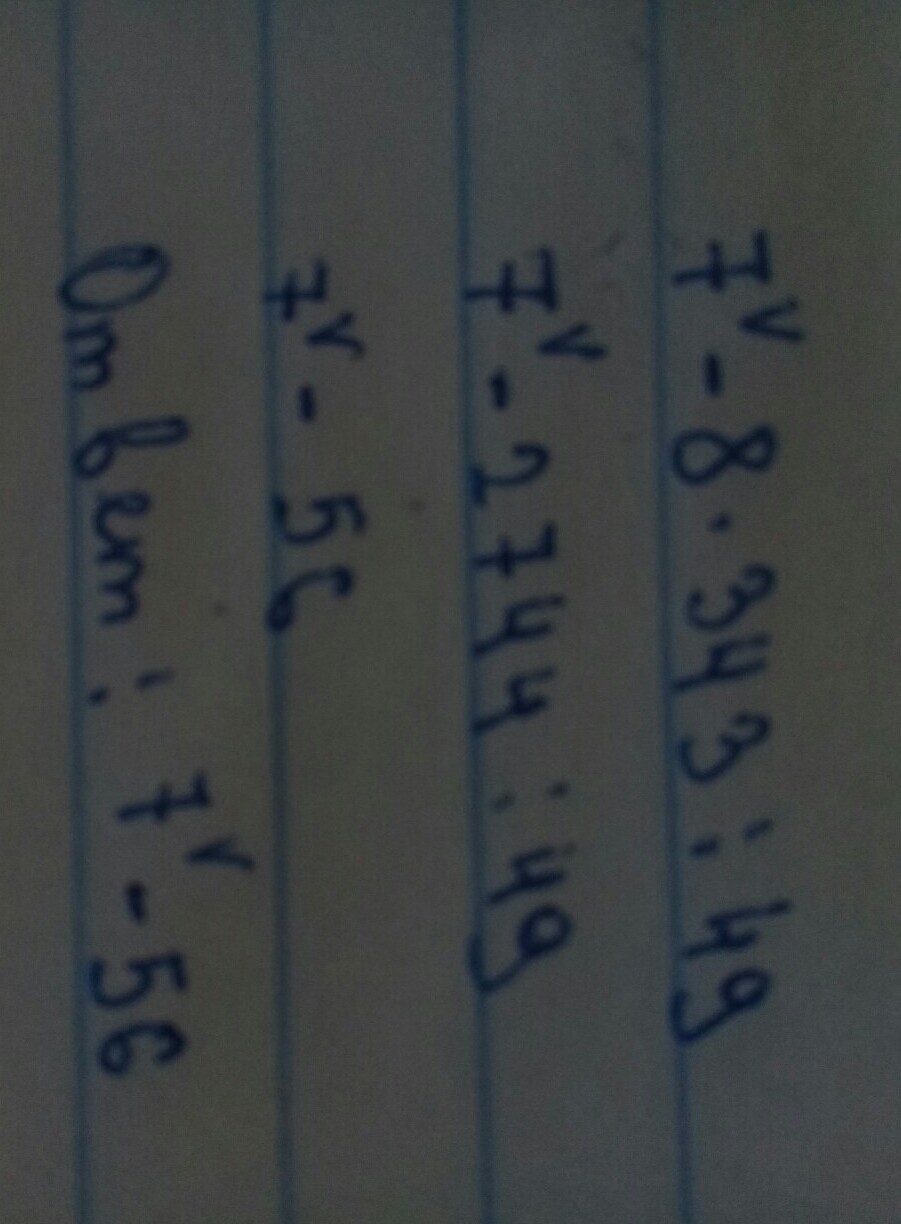 7ᵛ - 8 · 343 : 49
7ᵛ - 2744 : 49
7ᵛ - 56
Ответ: 7ᵛ - 56